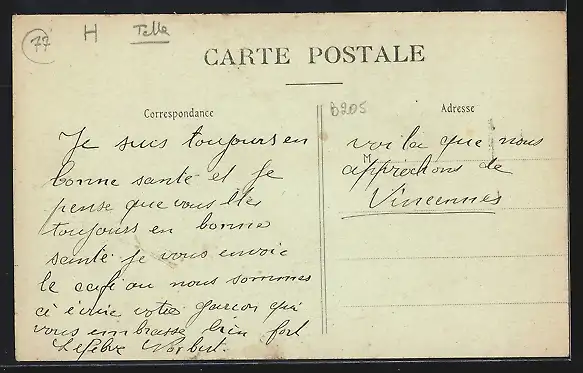 77 H Telle
CARTE POSTALE
B205
Correspondance
Adresse
Je suis toujours en
bonne santé et je
pense que vous etes
toujours en bonne
santé je vous envoie
le café ou nous sommes
a écrire votre garcon qui
vous embrasse bien fort
Lefebre Norbert.
voi la que nous
M
approchons de
Vincennes